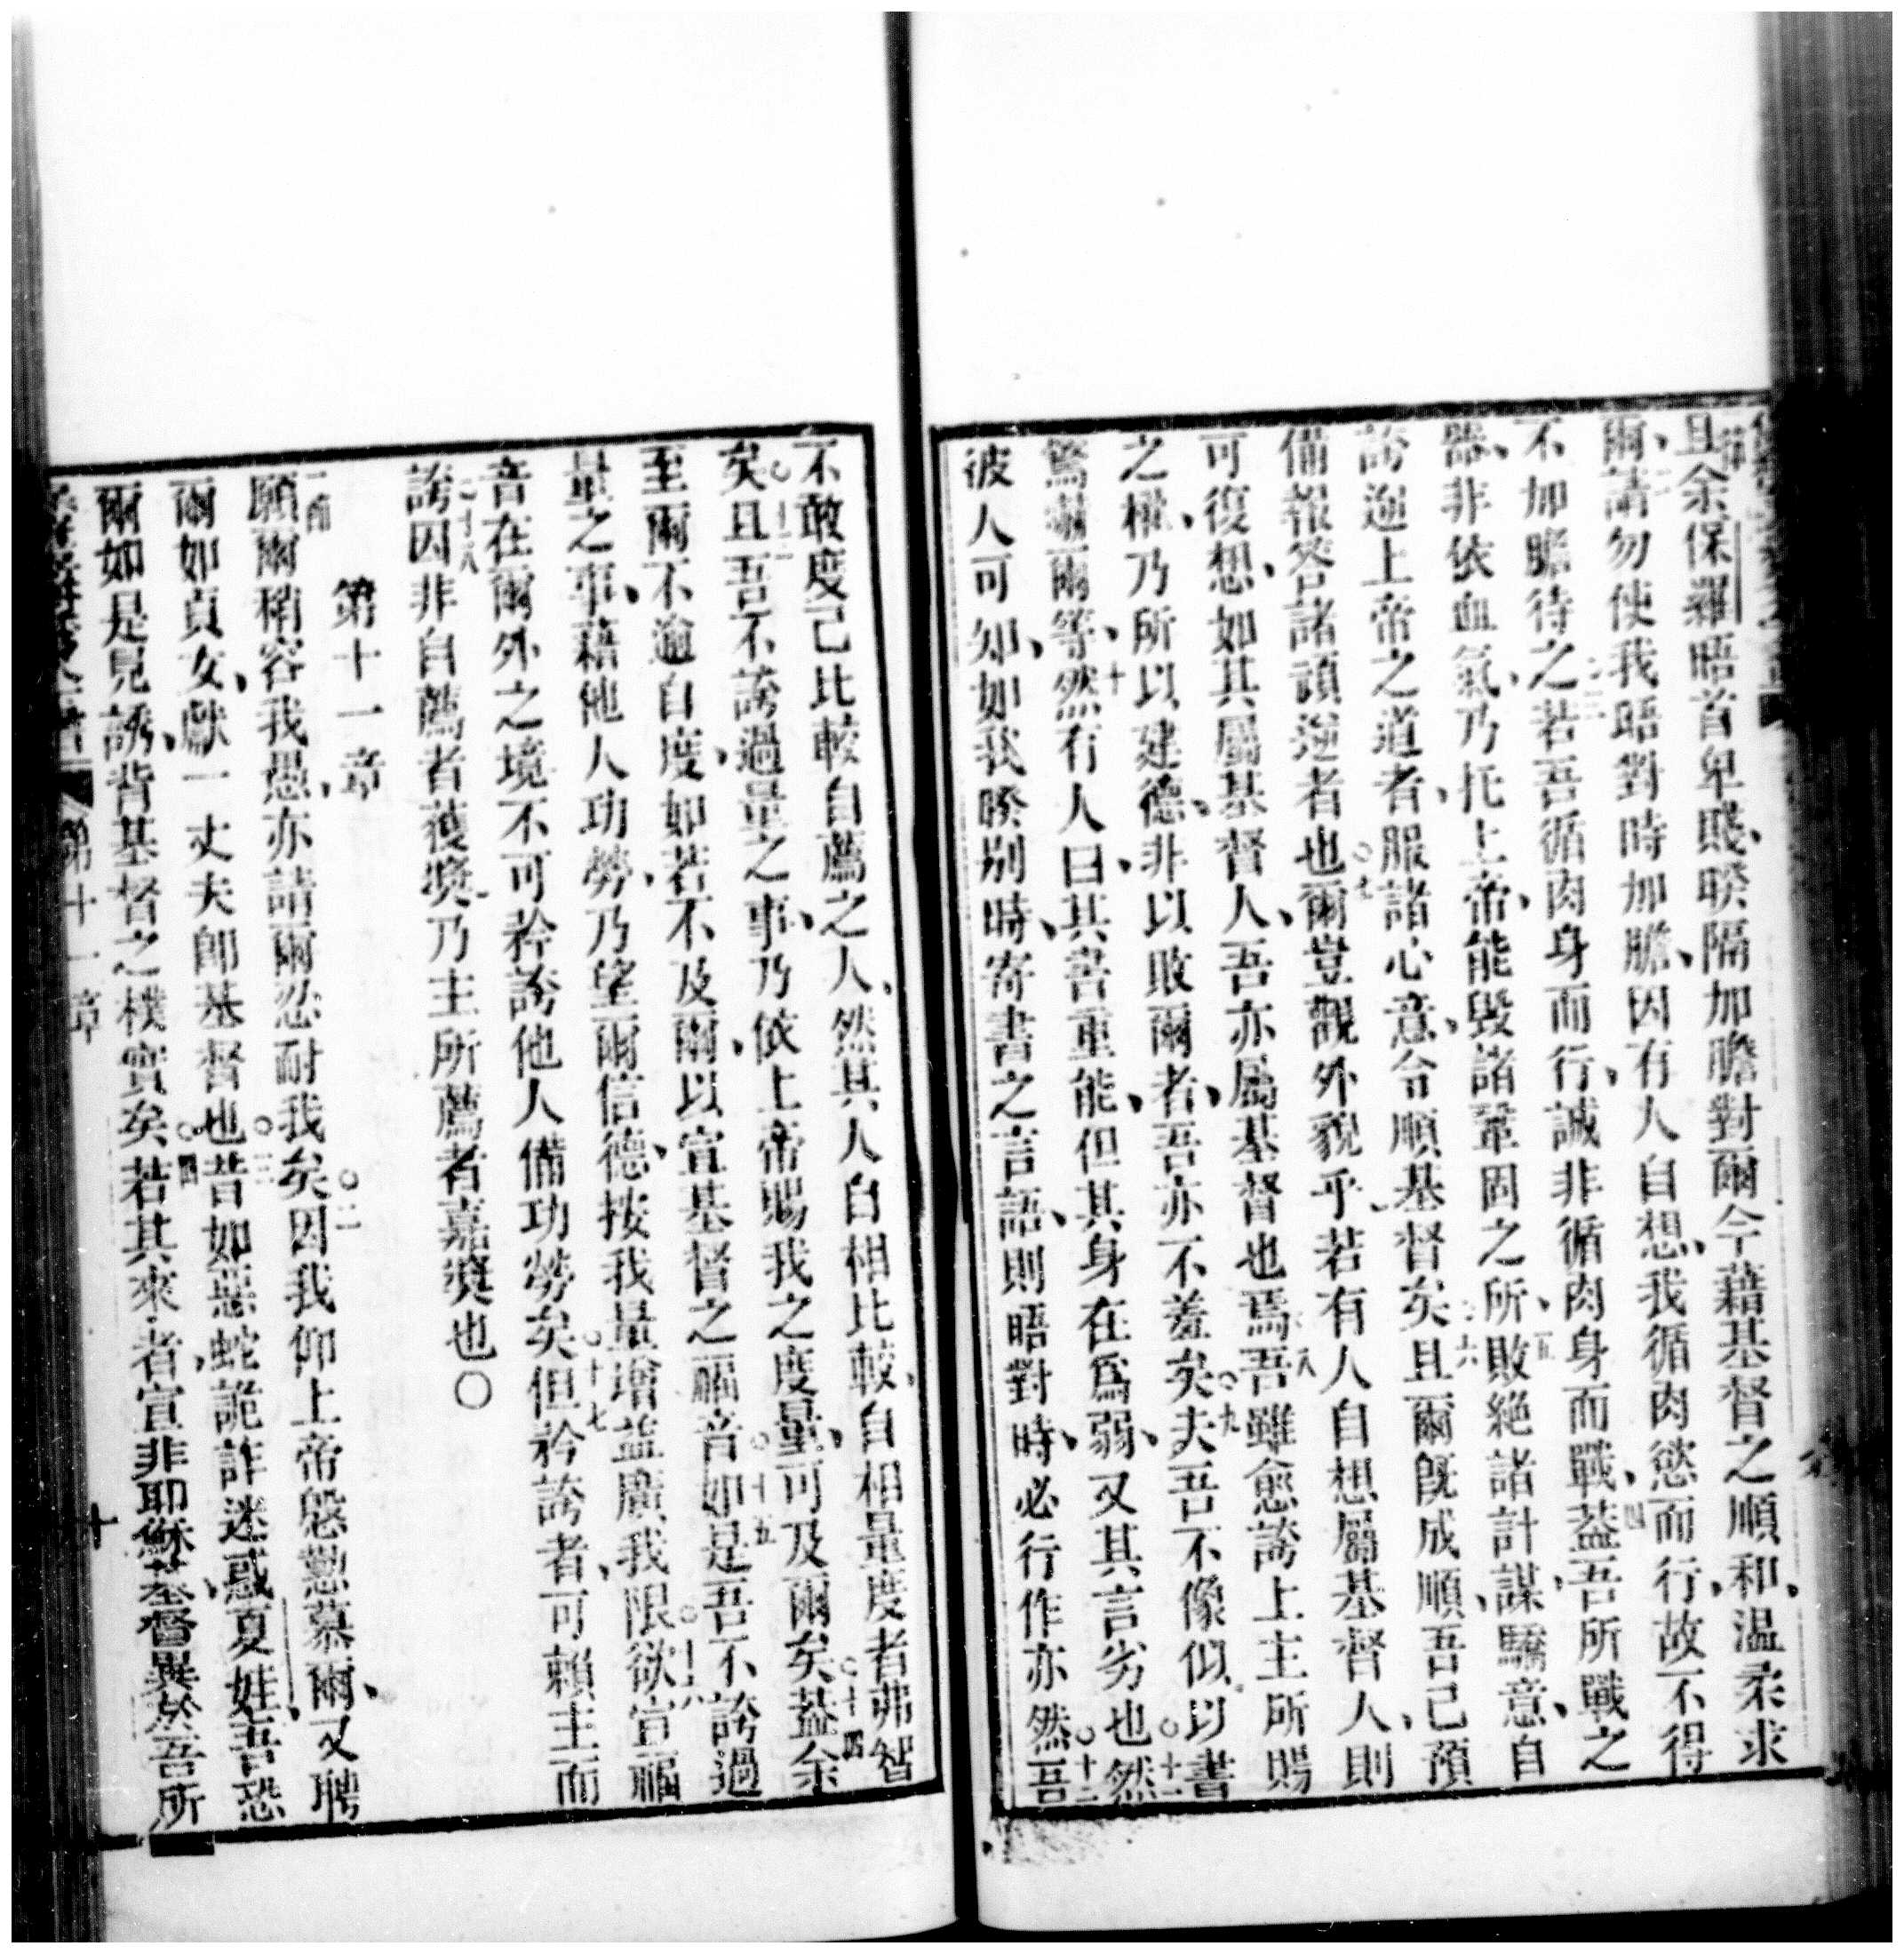 且余保羅晤首卑賤、暌隔加膽對爾今藉基督之順和、温柔求
爾、請勿使我晤對時加膽、因有人自想、我循肉慾而行、故不得
不加膽待之若吾循肉身而行、誠非循肉身而戰、蓋吾所戰之
器、非依血氣、乃托上帝、能毀諸鞏固之所、敗絶諸計謀、驕意、自
誇逆上帝之道者、服諸心意、令順基督矣且爾旣成順、吾己預
備報答諸頑逆者也爾豈觀外貌乎、若有人自想屬基督人、則
可復想、如其屬基督人、吾亦屬基督也焉吾雖愈誇上主所賜
之權、乃所以建德、非以敗爾者、吾亦不羞矣夫吾不像似以書
驚嚇爾等、然有人曰、其書重能、但其身在爲弱、又其言劣也然
彼人可知、如我暌别時、寄書之言語、則晤對時、必行作亦然吾
不敢度己比較自薦之人、然其人自相比較、自相量度者弗智
矣且吾不誇過量之事、乃依上帝賜我之度量、可及爾矣蓋余
至爾不逾自度、如若不及爾、以宣基督之福音如是吾不誇過
量之事、藉他人功勞、乃望爾信德、按我量增益廣我限欲宣福
音在爾外之境不可矜誇他人備功勞矣但矜誇者、可賴主而
誇因非自薦者獲奬、乃主所薦者嘉奬也〇
第十一章
願爾稍容我愚、亦請爾忍耐我矣因我仰上帝慇懃慕爾、又聘
爾如貞女、獻一丈夫卽基督也昔如惡蛇、詭詐迷惑夏娃、吾恐
爾如是見誘、背基督之樸實矣、若其來者宣非耶穌基督異於吾所
第十一章
十